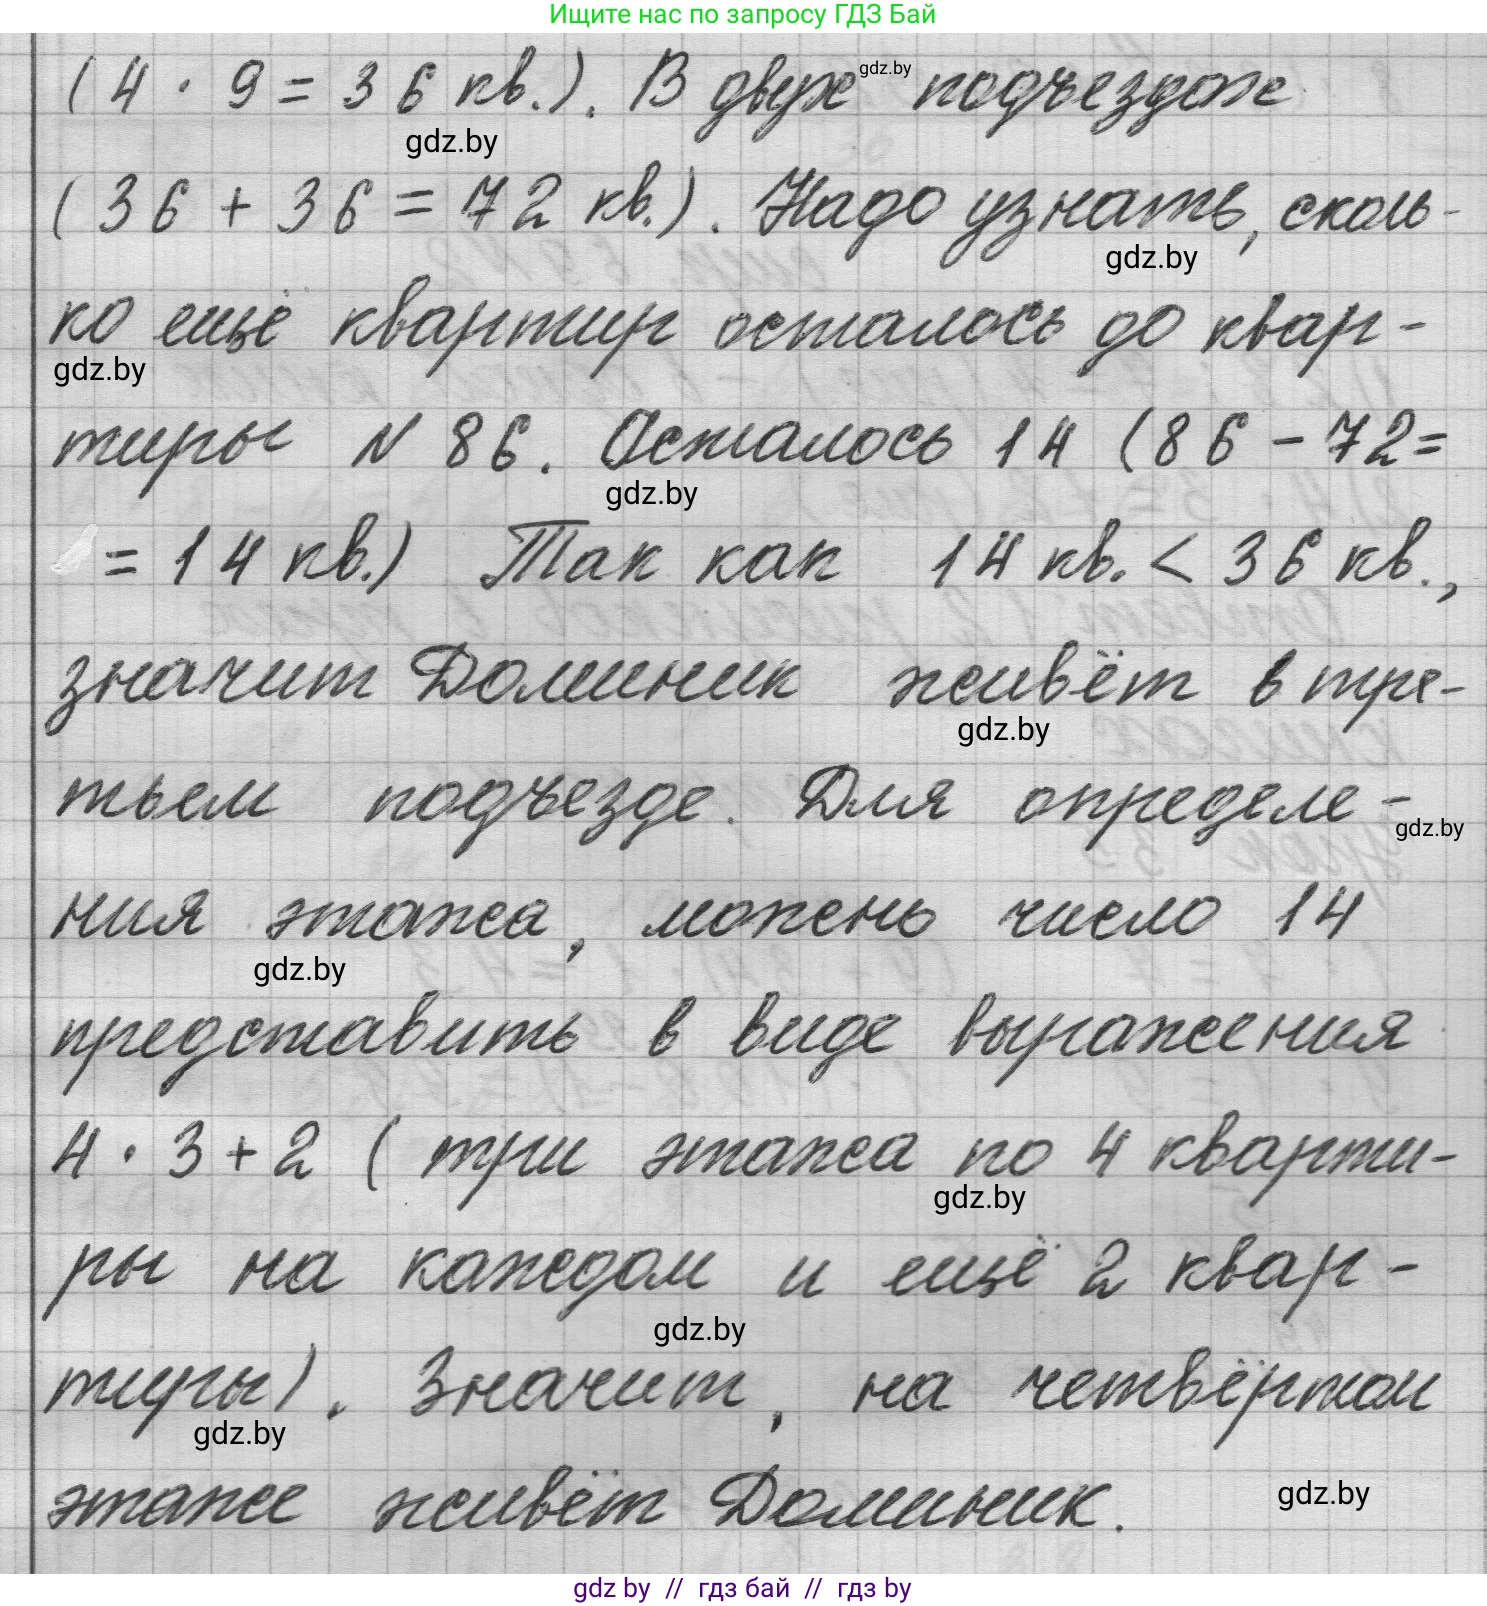 Ищите нас по запросу ГДЗ Бай
(4 · 9 = 36 кв.). В двух подъездах
gdz.by
gdz.by
(36 + 36 = 72 кв.). Надо узнать, сколь-
gdz.by
ко ещё квартир осталось до квар-
gdz.by
тиры N 86. Осталось 14 (86 - 72 =
gdz.by
= 14 кв.) Так как 14 кв. < 36 кв.,
значит Доминик живёт в тре-
gdz.by
тьем подъезде. Для определе-
gdz.by
ния этажа, можень число 14
gdz.by
представить в виде выражения
4 · 3 + 2 ( три этажа по 4 кварти-
gdz.by
ры на каждом и ещё 2 квар-
gdz.by
тиры). Значит, на четвёртом
gdz.by
этаже живёт Доминик.
gdz.by
gdz by // гдз бай // гдз by